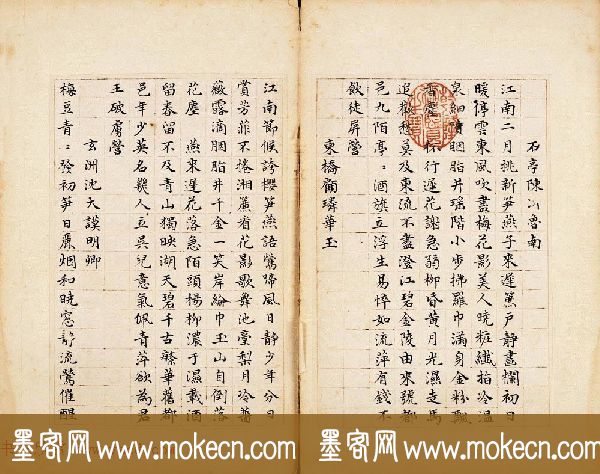 石亭陳沂魯南
江南二月挑新笋燕子來遲簾戶靜畫欄初日
暖停雲東風吹盡梅花影美人曉粧纖指冷温
泉細 胭脂井瑤階小步拂羅巾滿身金粉飄
 行遲花謝急弱柳昏黄月光濕走馬
追 莫及東流不盡澄江碧金陵由來號都
邑九陌亭〻酒旗立浮生易悴如流萍有錢不
飲徒屏營
東橋顧璘華玉
江南節候誇櫻笋燕語鶯啼風日靜少年分日
賞芳菲不捲湘簾看花影歌舞池臺梨月冷薔
薇露滴胭脂井千金一笑岸綸巾玉山自倒落
花塵 燕來遲花落急陌頭楊柳濃于濕載酒
留春留不及青山獨映湖天碧千古繁華舊都
邑年少英名幾人立吳兒意氣佩青萍欲為君
王破虜營
玄洲沈大謨明卿
梅豆青〻發初笋日麗烟和曉窓靜流鶯催醒
墨客网_www.mokecn.com
墨客网_www.mokecn.com